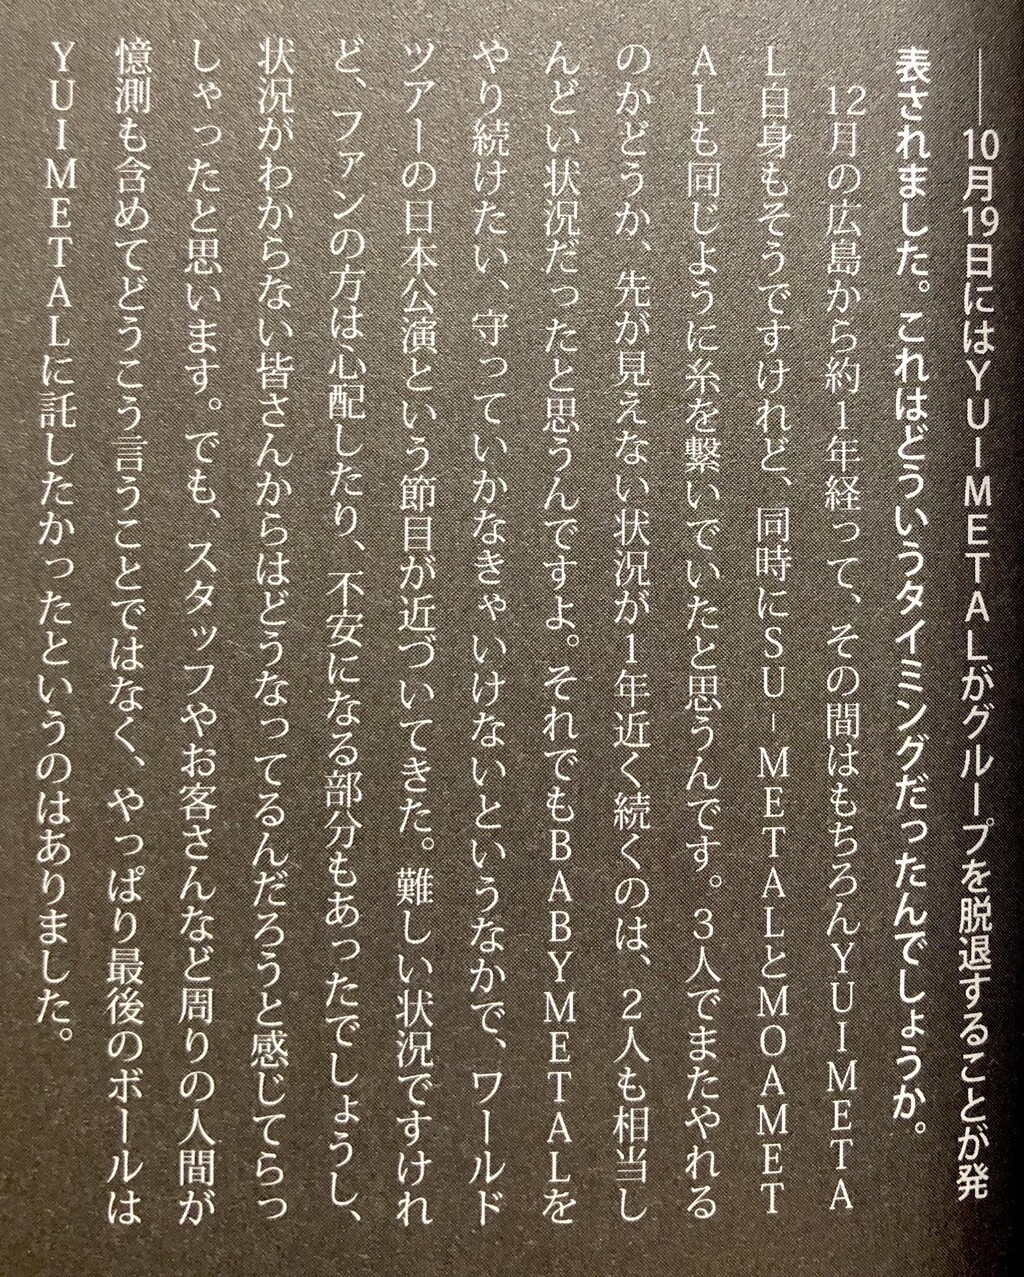 ――10月19日にはYUIMETALがグループを脱退することが発
表されました。これはどういうタイミングだったんでしょうか。
12月の広島から約1年経って、その間はもちろんYUIMETA
L自身もそうですけれど、同時にSU-METALとMOAMET
ALも同じように糸を繋いでいたと思うんです。3人でまたやれる
のかどうか、先が見えない状況が1年近く続くのは、2人も相当し
んどい状況だったと思うんですよ。それでもBABYMETALを
やり続けたい、守っていかなきゃいけないというなかで、ワールド
ツアーの日本公演という節目が近づいてきた。難しい状況ですけれ
ど、ファンの方は心配したり、不安になる部分もあったでしょうし、
状況がわからない皆さんからはどうなってるんだろうと感じてらっ
しゃったと思います。でも、スタッフやお客さんなど周りの人間が
憶測も含めてどうこう言うことではなく、やっぱり最後のボールは
YUIMETALに託したかったというのはありました。